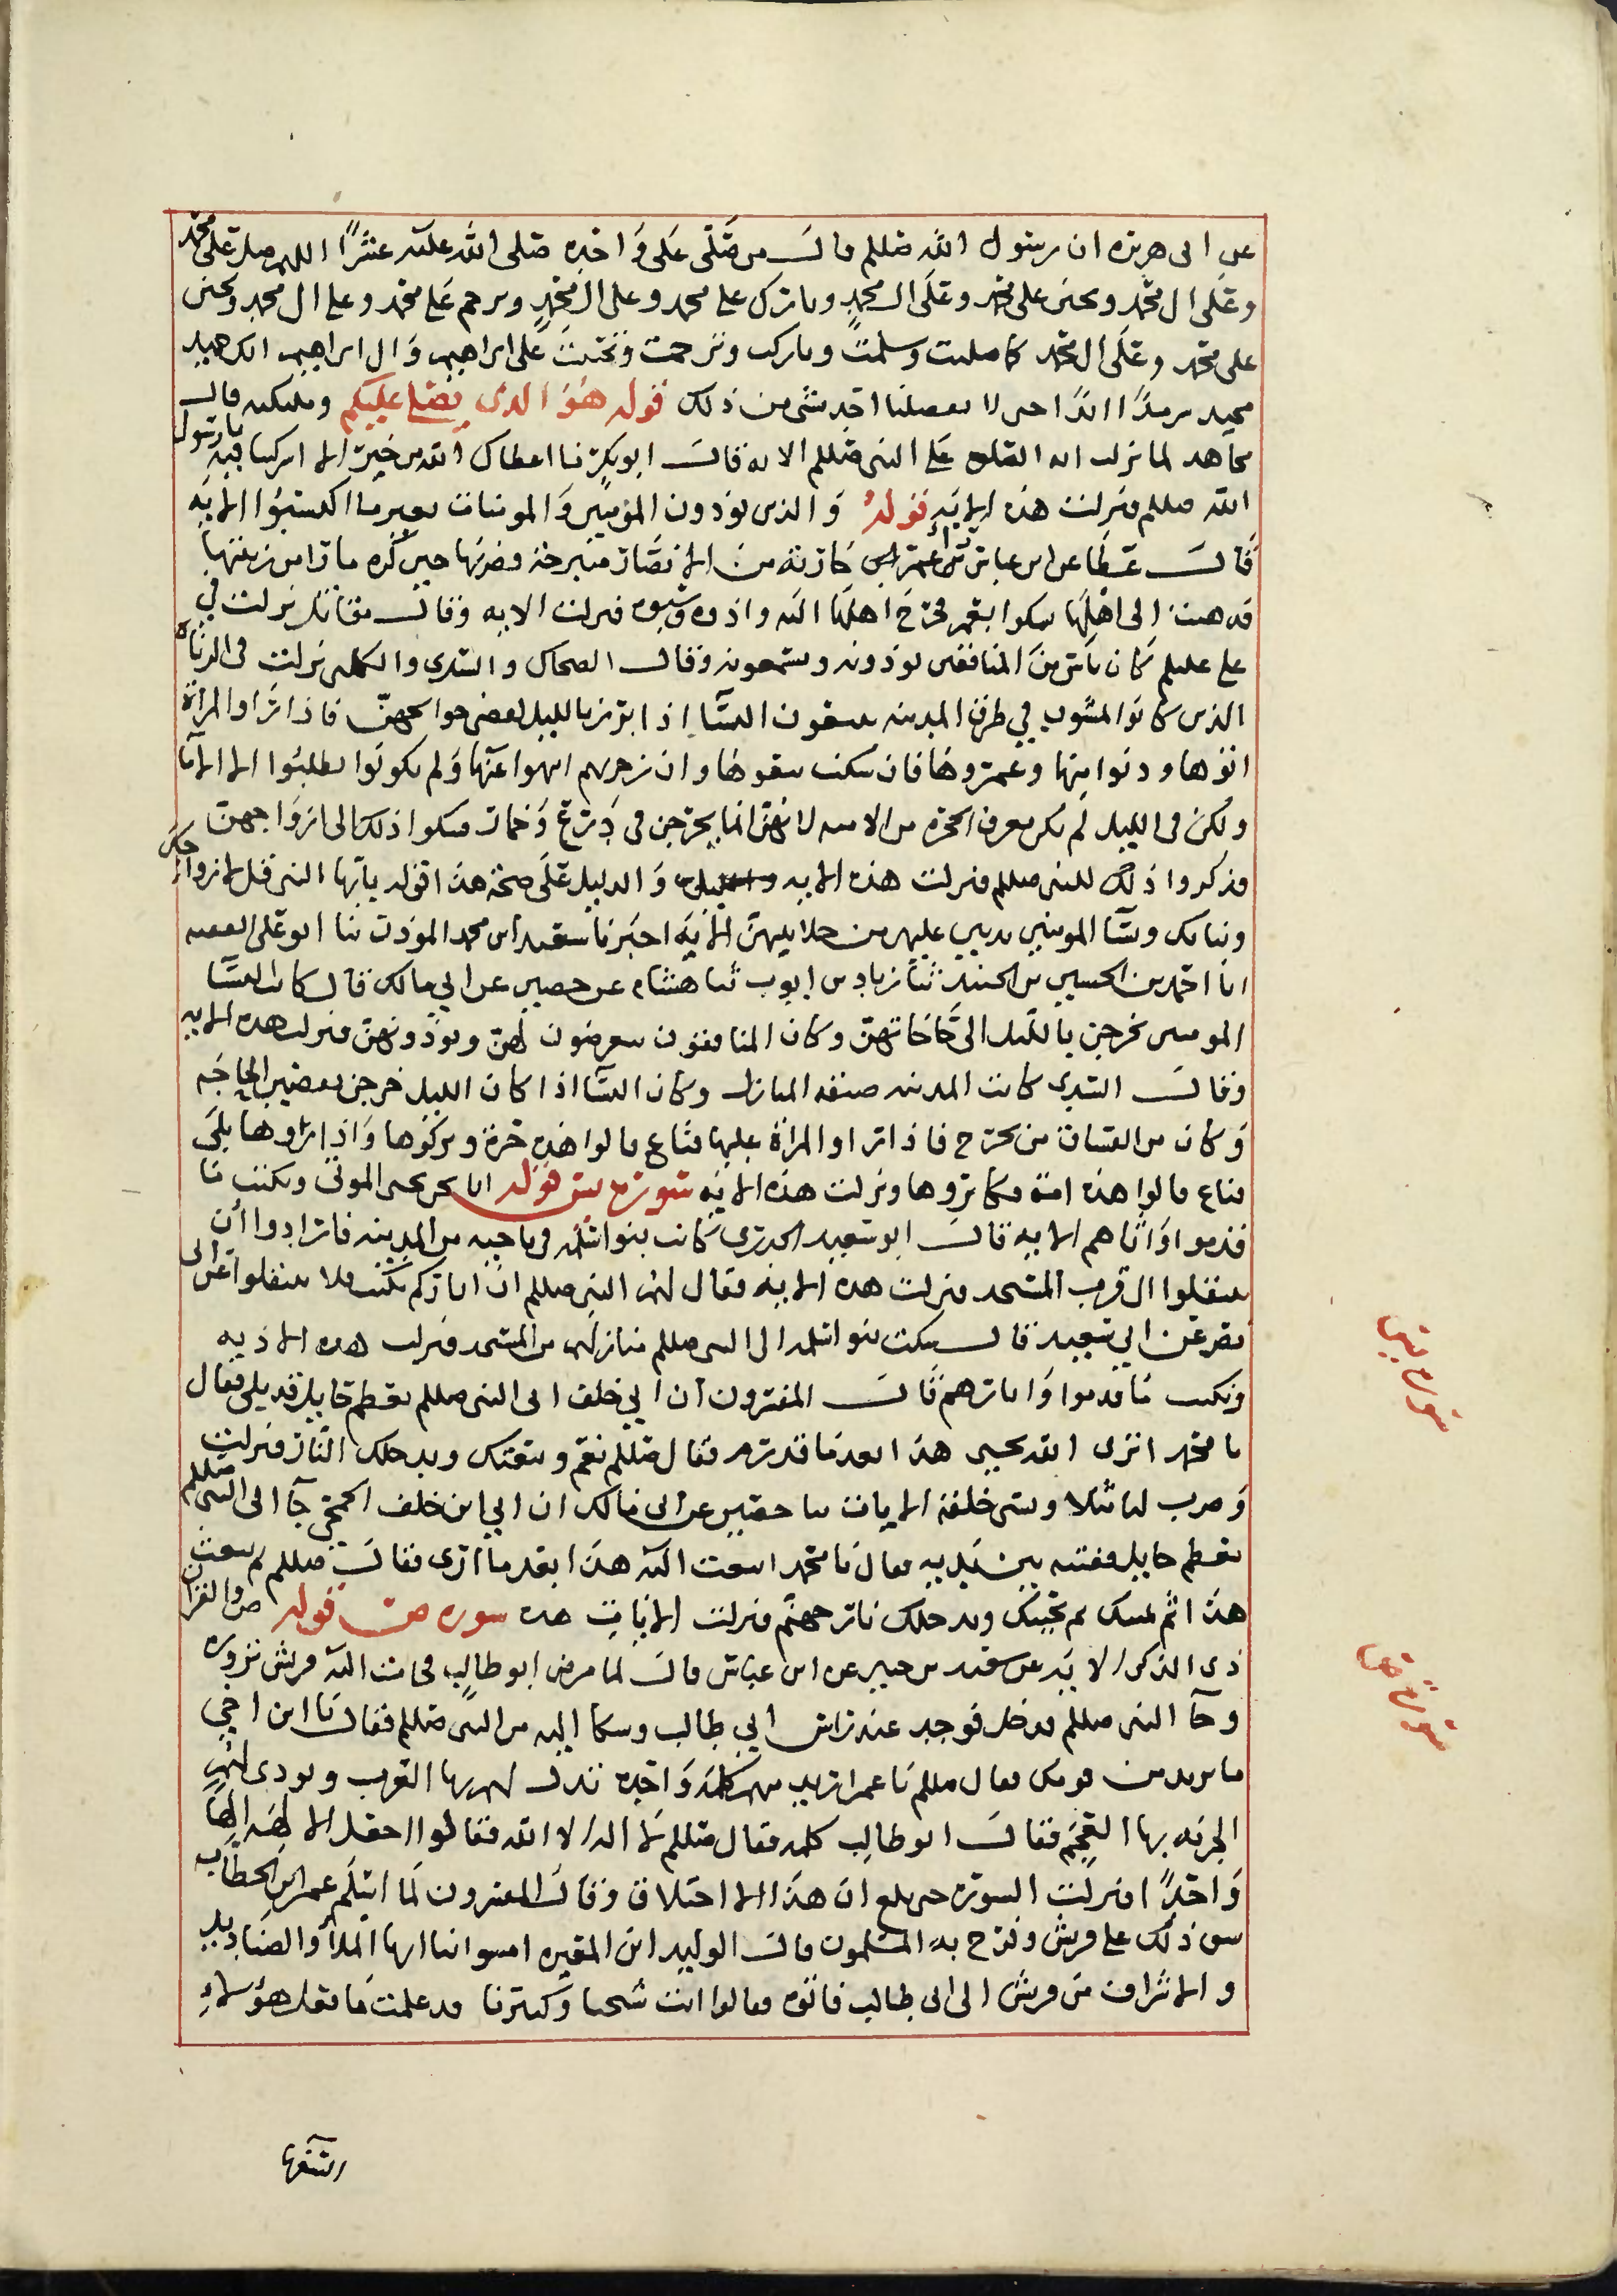 عن ابى هريره ان رسول الله صللم قال من صلى على واحده صلى الله عليه عشرًا اللهم صل على محمد
وعلى ال محمد وتحنن على محمد وعلى ال محمد وبارك على محمد وعلى ال محمد وترحم على محمد وعلى ال محمد وتحنن
على محمد وعلى ال محمد كما صليت وسلمت وباركت وترحمت وتحننت على ابراهيم وال ابراهيم انك حميد
مجيد سرمدًا ابدًا حتى لا يفصلنا احد بشى من ذلك قوله هو الذى يصلى عليكم وملىكته قال
مجاهد لما نزلت ان الصلوه على النبى صللم الايه قال ابو بكر ما اعطاك الله من خير الا اشركنا فيه يا رسول
الله صللم فنزلت هذه الايه قوله والذين يوذون المؤمنين والمومنات بغير ما اكتسبوا الايه
قال عطا عن ابن عباس رأى عمر جاريه من الانصار متبرجه فضربها حين كره ما رأى من زينتها
فذهبت الى اهلها تشكوا بعمر فخرج اهلها اليه واذوه وسبوه فنزلت الايه وقال مقاتل نزلت في
على عليلم كان ناس من المنافقين يوذونه ويسمعونه وقال الضحاك والسدى والكلبى نزلت فى الزناه
الذين كانوا يمشون في طرق المدينه يتبعون النسآ اذا برزن بالليل لقضى حوائجهن فاذا راوا المراه
اتوها ودنوا منها وغمزوها فان سكنت تبعوها وان زجرتهم انتهوا عنها ولم يكونوا يطلبوا الا الامآ
ولكن فى الليل لم يكن يعرف الحره من الامه لانهن انما يخرجن فى درع وخمار فشكوا ذلك الى ازواجهن
فذكروا ذلك للنبى صللم فنزلت هذه الايه والدليل على صحة هذا قوله يآيها النبى قل لازواجك
وبناتك ونسآ المومنين يدنين عليهن من جلابيبهن الايه اخبرنا سعيد ابن محمد المؤذن ثنا ابو على الفقيه
انا احمد بن الحسين بن الجنيد ثنا زياد بن ايوب ثنا هشام عن حصين عن ابي مالك قال كانت النسآ
المومنين يخرجن بالليل الى حاجاتهن وكان المنافقون يتعرضون لهن ويوذونهن فنزلت هذه الايه
وقال السدى كانت المدينه ضيقه المنازل وكان النسآ اذا كان الليل خرجن يقضين الحاجه
وكان من الفساق من يخرج فاذا راوا المراة عليها قناع قالوا هذه حرة وتركوها واذا راوها بلى
قناع قالوا هذه امة فكابروها ونزلت هذه الايه سورة يس قوله انا نحن نحيى الموتى ونكتب ما
قدموا واثاهم الايه قال ابو سعيد الخدرى كانت بنوا سلمه فى ناحيه من المدينه فارادوا أن
ينتقلوا الى قرب المسجد فنزلت هذه الايه فقال لهم النبى صللم ان اثاركم تكتب فلا تنتقلوا عن ابى
نصر عن ابي سعيد قال شكت بنوا سلمه الى النبى صللم منازلهم من المسجد فنزلت هذه الاذيه
ونكتب ما قدموا واثارهم قال المفسرون ان ابي خلف اتى النبى صللم بعظم حايل قد بلى فقال
يا محمد اترى الله يحيى هذا بعد ما قد رم فقال صللم نعم ويبعثك ويدخلك النار فنزلت
وضرب لنا مثلا ونسى خلقه الايات ثنا حصين عن ابى مالك ان ابي ابن خلف الجمحى جآ الى النبى صللم
بعظم حايل ففتته بين يديه فقال يا محمد ايبعث الله هذا بعد ما ارى فقال صللم لم يبعث
هذا ثم يميتك ثم يحييك ويدخلك نار جهنم فنزلت الايات هذه سوره ص قوله ص والقرآن
ذى الذكر الايه عن سعيد بن جبير عن ابن عباس قال لما مرض ابو طالب فجات اليه قريش تزوره
وجآ النبى صللم فدخل فوجد عند راس ابي طالب وشكا اليه من النبى صللم فقال يا ابن اخي
ما تريد من قومك فقال صللم يا عم اريد منهم كلمه واحده تذل لهم بها العرب وتودى لهم
الجزيه بها العجم فقال ابو طالب كلمه فقال صللم لا اله الا الله فقالوا اجعل الالهه الها
واحدًا فنزلت السورة حتى بلغ ان هذا الا اختلاق وقال المفسرون لما اسلم عمر ابن الخطاب
شق ذلك على قريش وفرح به المسلمون قال الوليد ابن المغيره امشوا بنا ايها الملأ والصناديد
والاشراف من قريش الى ابى طالب فاتوه فقالوا انت شيخنا وكبيرنا قد علمت ما فعل هؤلاء
سورة يس
سورة ص
السفها